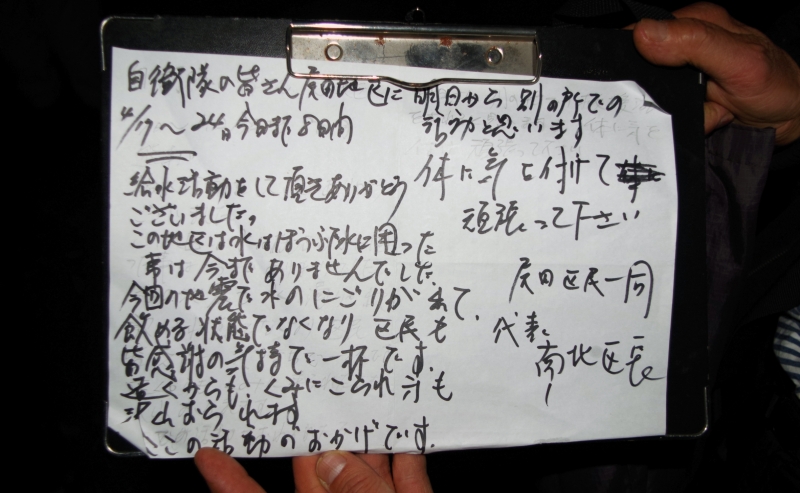 自衛隊の皆さん 戻田地区に
4/17〜24日 今日まで8日間
給水活動をして頂きありがとう
ございました。
この地区は水はほうふ 水に困った
事は今までありませんでした。
今回の地震で水のにごりが出て、
飲める状態でなくなり 区民も
皆感謝の気持で一杯です。
遠くからも、くみにこられる方も
沢山おられます
ここの活動のおかげです。
明日から別の所での
活動と思います
体に気を付けて
頑張って下さい
区民一同
代表
区長